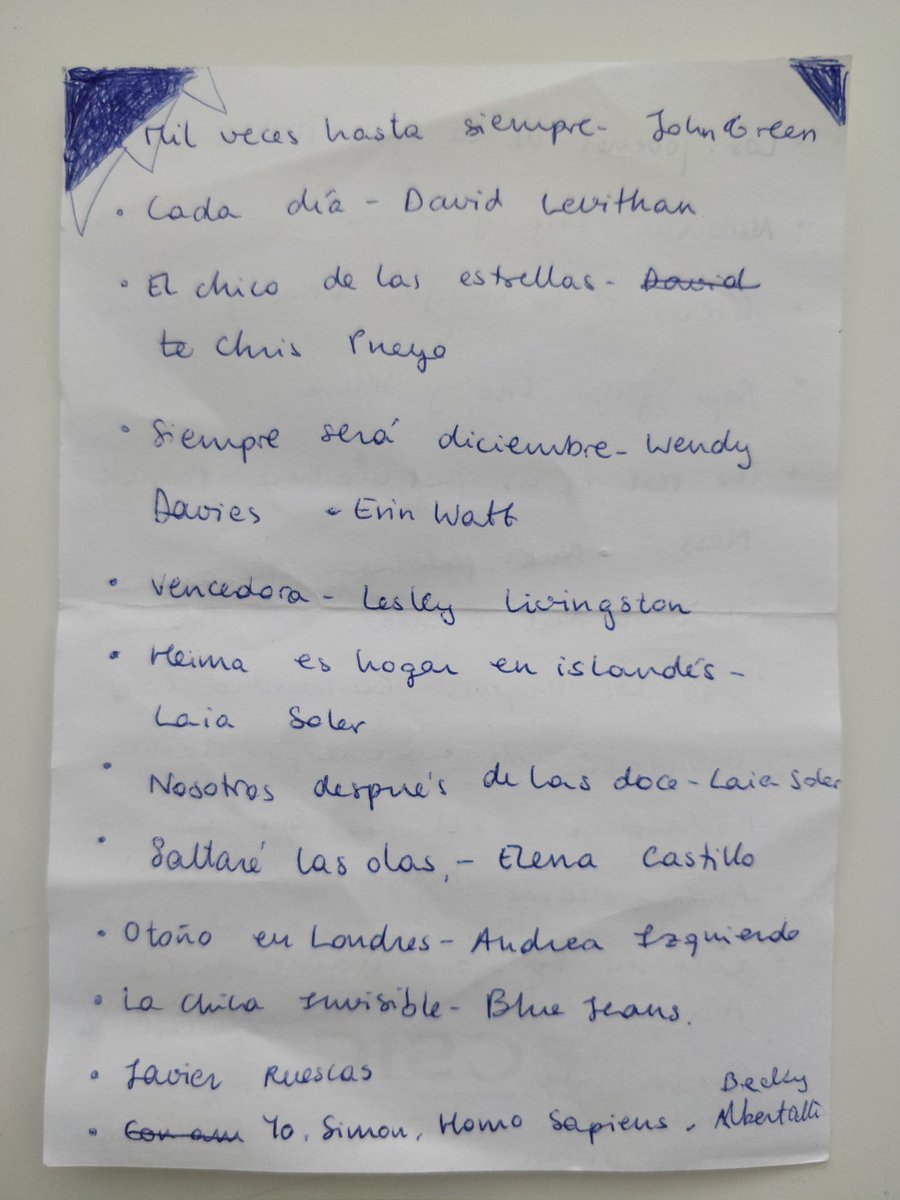 Mil veces hasta siempre- John Green
• Cada día - David Levithan
• El chico de las estrellas- David
te Chris Pueyo
• Siempre será diciembre- Wendy
Davies - Erin Watt
• Vencedora - Lesley Livingston
• Heima es hogar en islandés-
Laia Soler
• Nosotros después de las doce - Laia Soler
• Saltaré las olas, - Elena Castillo
• Otoño en Londres- Andrea Izquierdo
• La Chica Invisible- Blue Jeans.
• Javier Ruescas
• Yo, Simon, Homo Sapiens, Becky Albertalli